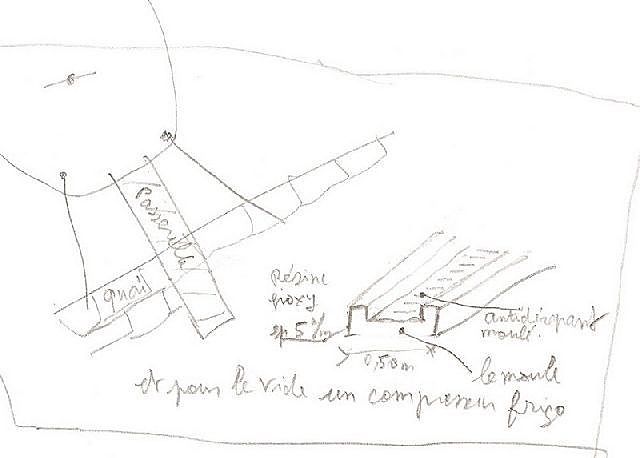 Passerelle
quai
Résine
époxy
ep 5 m/m
antidérapant
moulé.
0,50m
le moule
et pour le vide un compresseur frigo